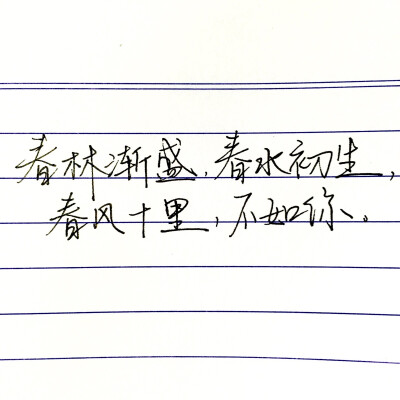 春林渐盛,春水初生,
春风十里,不如你。